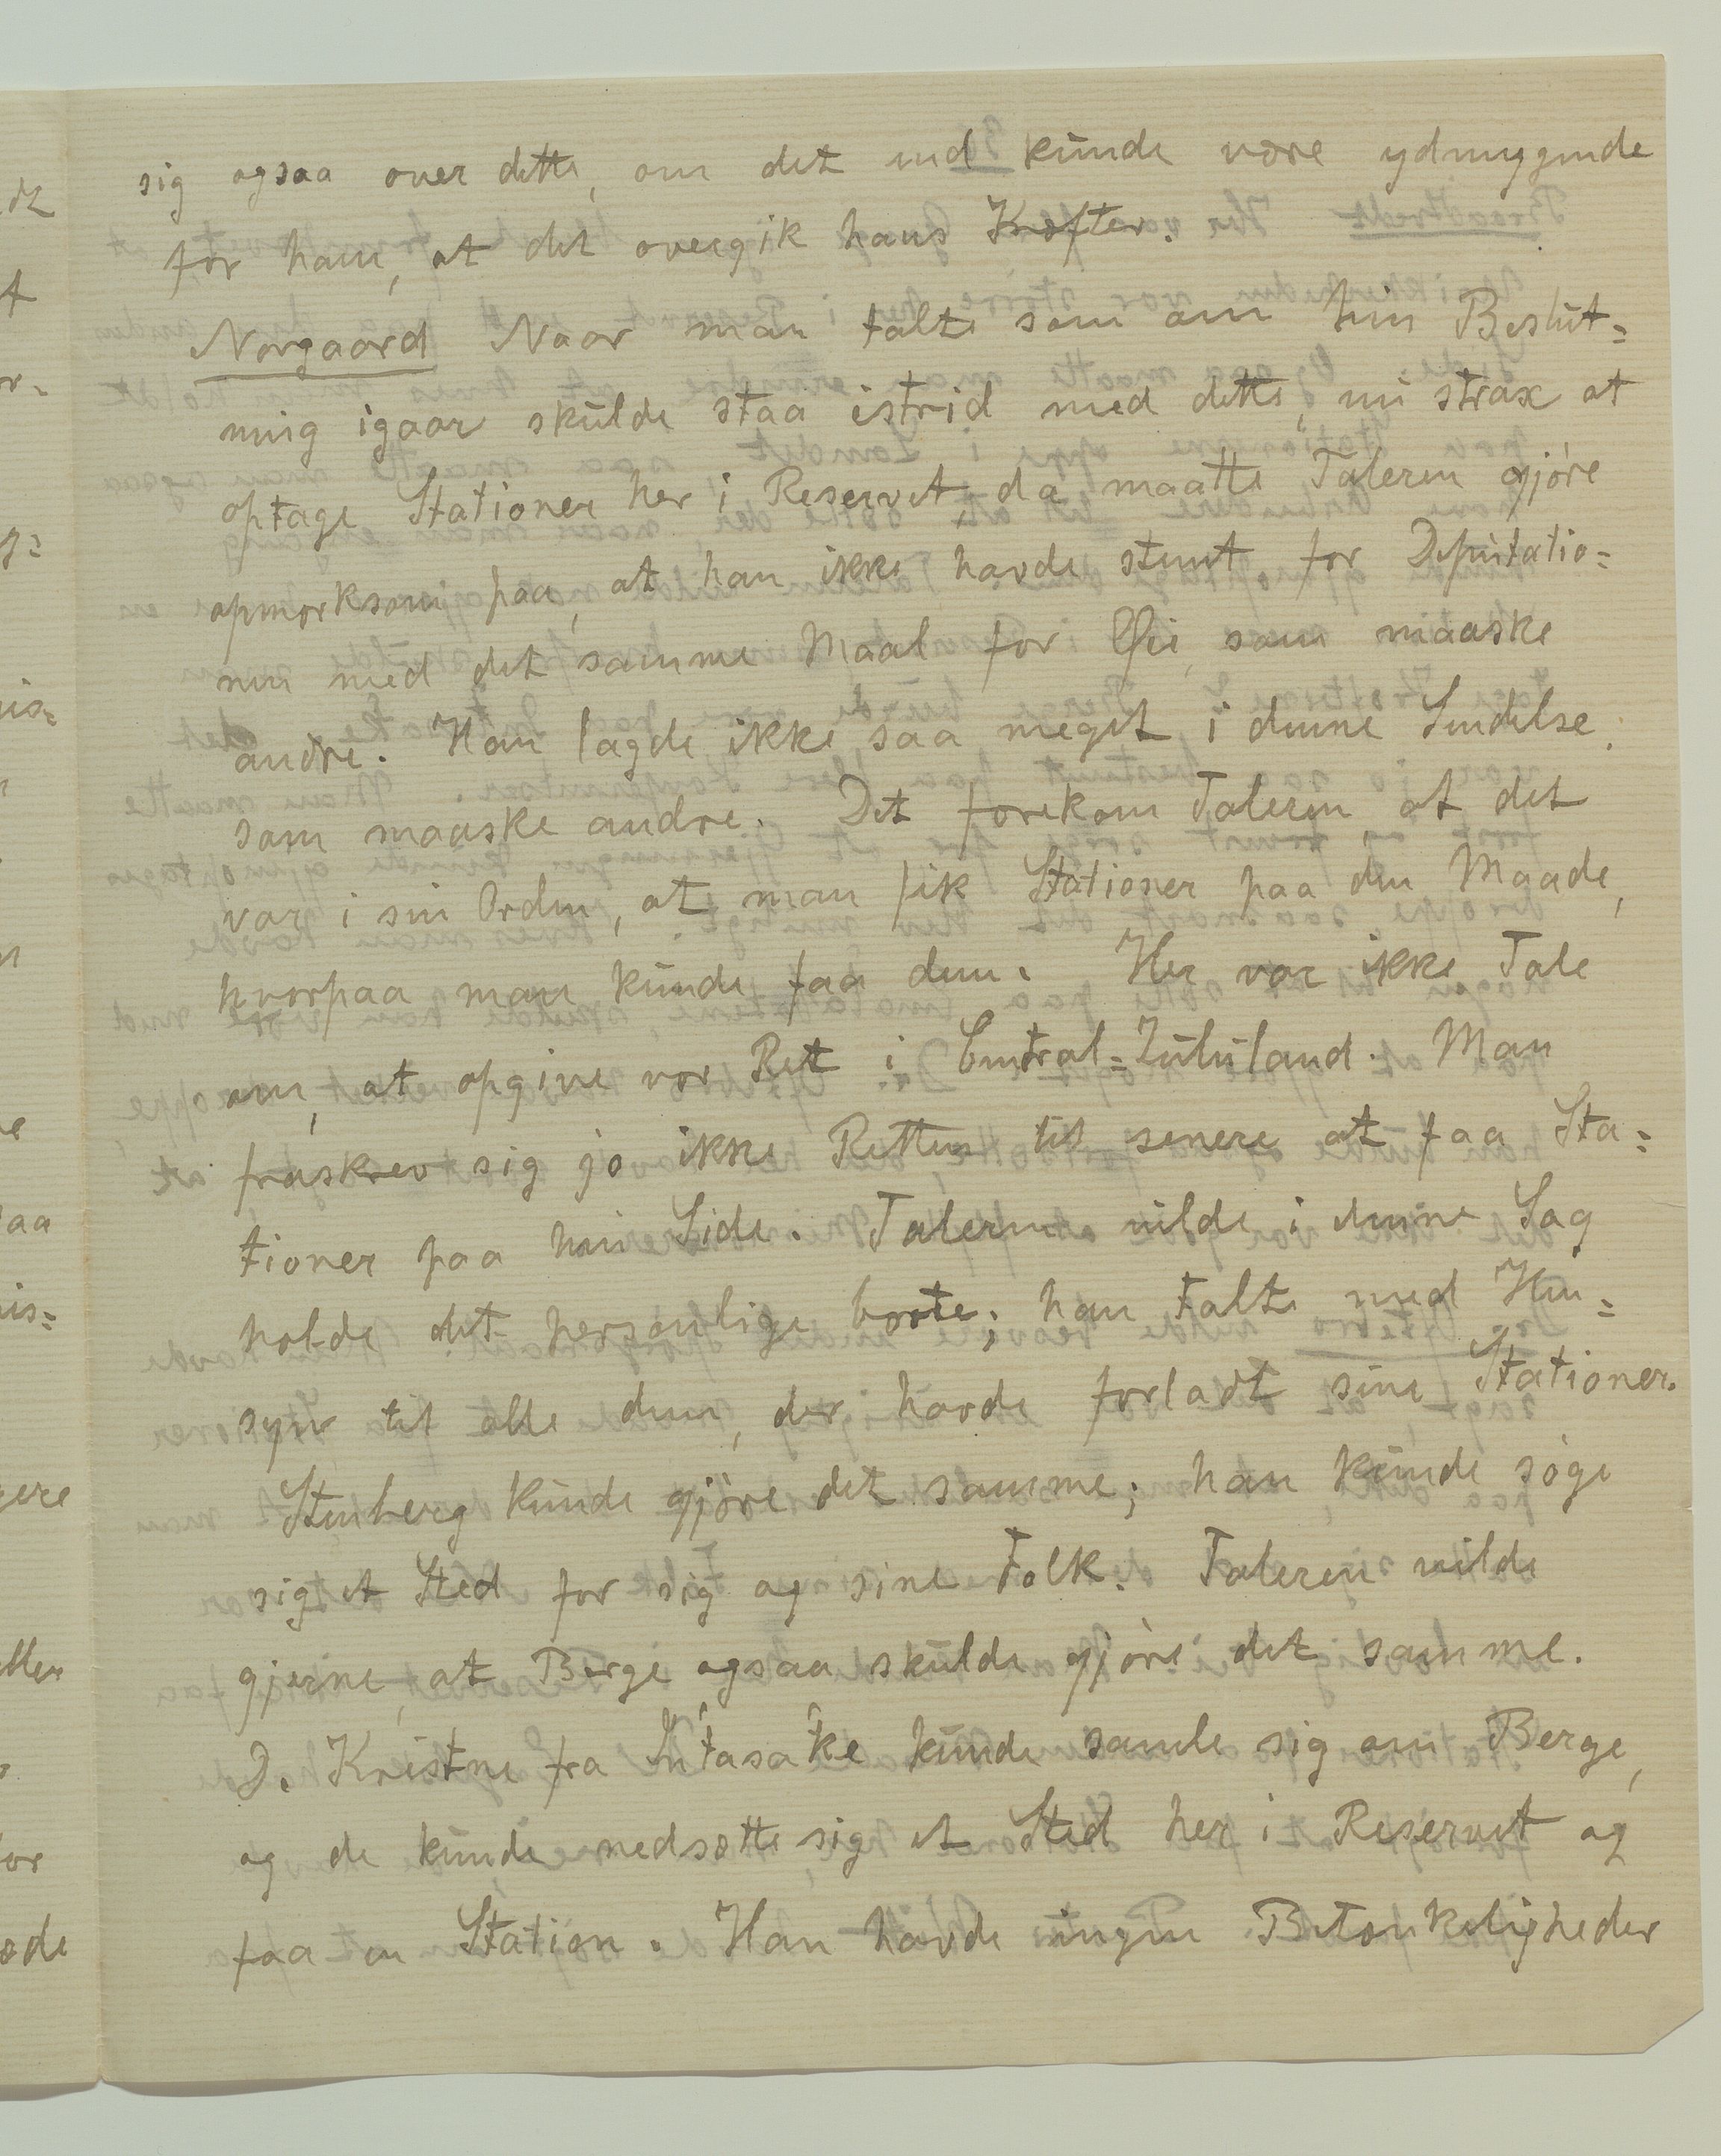 sig ogsaa over dette, om det end kunde være ydmygende
for ham, at det overgik hans Kræfter.
Norgaard Naar man talte som om hin Beslut=
ning igaar skulde staa istrid med dette, nu strax at
optage Stationer her i Reservet, da maatte Taleren gjöre
opmærksom paa, at han ikke havde stemt for Deputatio=
nen med det samme Maal for Øie, som maaske
andre. Han lagde ikke saa meget i denne Sendelse,
som maaske andre. Det forekom Taleren at det
var i sin Orden, at man fik Stationer paa den Maade,
hvorpaa man kunde faa dem. Her var ikke Tale
om, at opgive vor Ret i Central=Zululand. Man
fraskrev sig jo ikke Retten til senere at faa Sta=
tioner paa hin Side. Taleren vilde i denne Sag
holde det personlige borte; han talte med Hen=
syn til alle dem, der havde forladt sine Stationer.
Stenberg kunde gjöre det samme; han kunde söge
sig et Sted for sig og sine Folk. Taleren vilde
gjerne, at Berge ogsaa skulde gjöre det samme.
D. Kristne fra kunde samle sig om Berge,
og de kunde nedsætte sig et Sted her i Reservet og
faa en Station. Han havde ingen Betænkeligheder